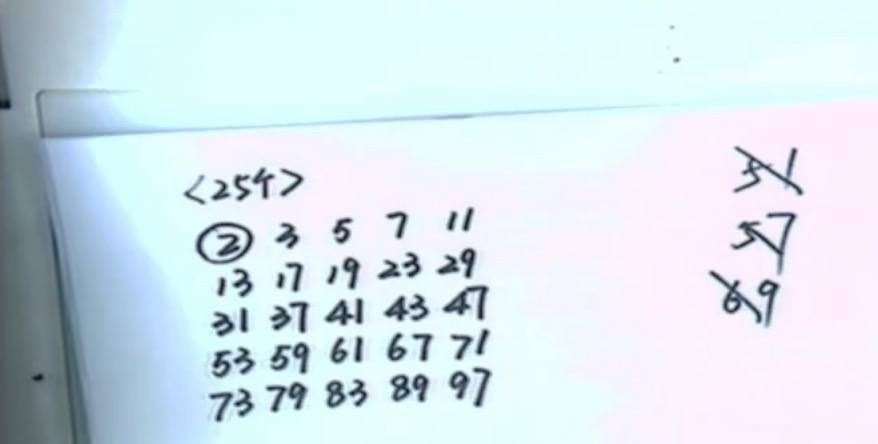 <25个>
2 3 5 7 11
13 17 19 23 29
31 37 41 43 47
53 59 61 67 71
73 79 83 89 97
51
57
69